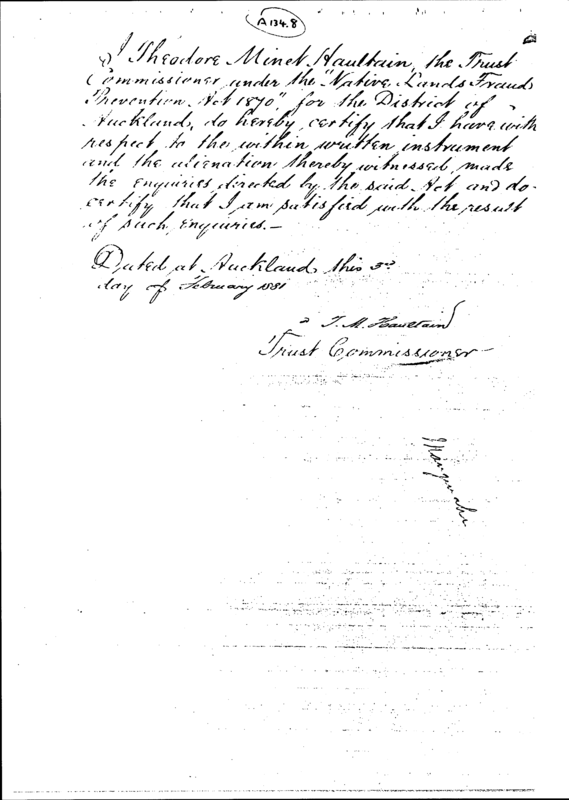 A134.8
I Theodore Minet Haultain, the Trust
Commissioner under the "Native Lands Frauds
Prevention Act 1870", for the District of
Auckland, do hereby certify that I have with
respect to the within written instrument
and the alienation thereby witnessed made
the enquiries directed by the said Act and do
certify that I am satisfied with the result
of such enquiries.—
Dated at Auckland this 3rd
day of February 1881
T. M. Haultain
Trust Commissioner